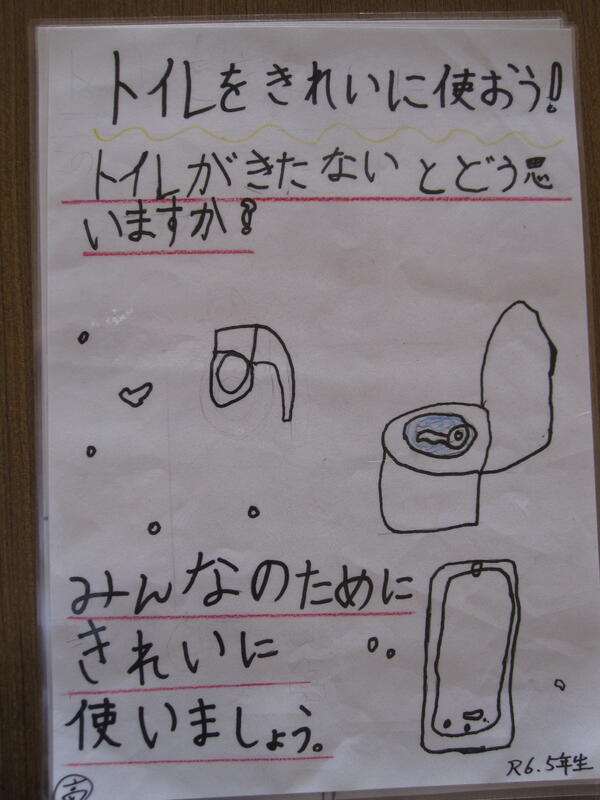 トイレをきれいに使おう!
トイレがきたないとどう思
いますか?
みんなのために
きれいに
使いましょう。
R6.5年生
高